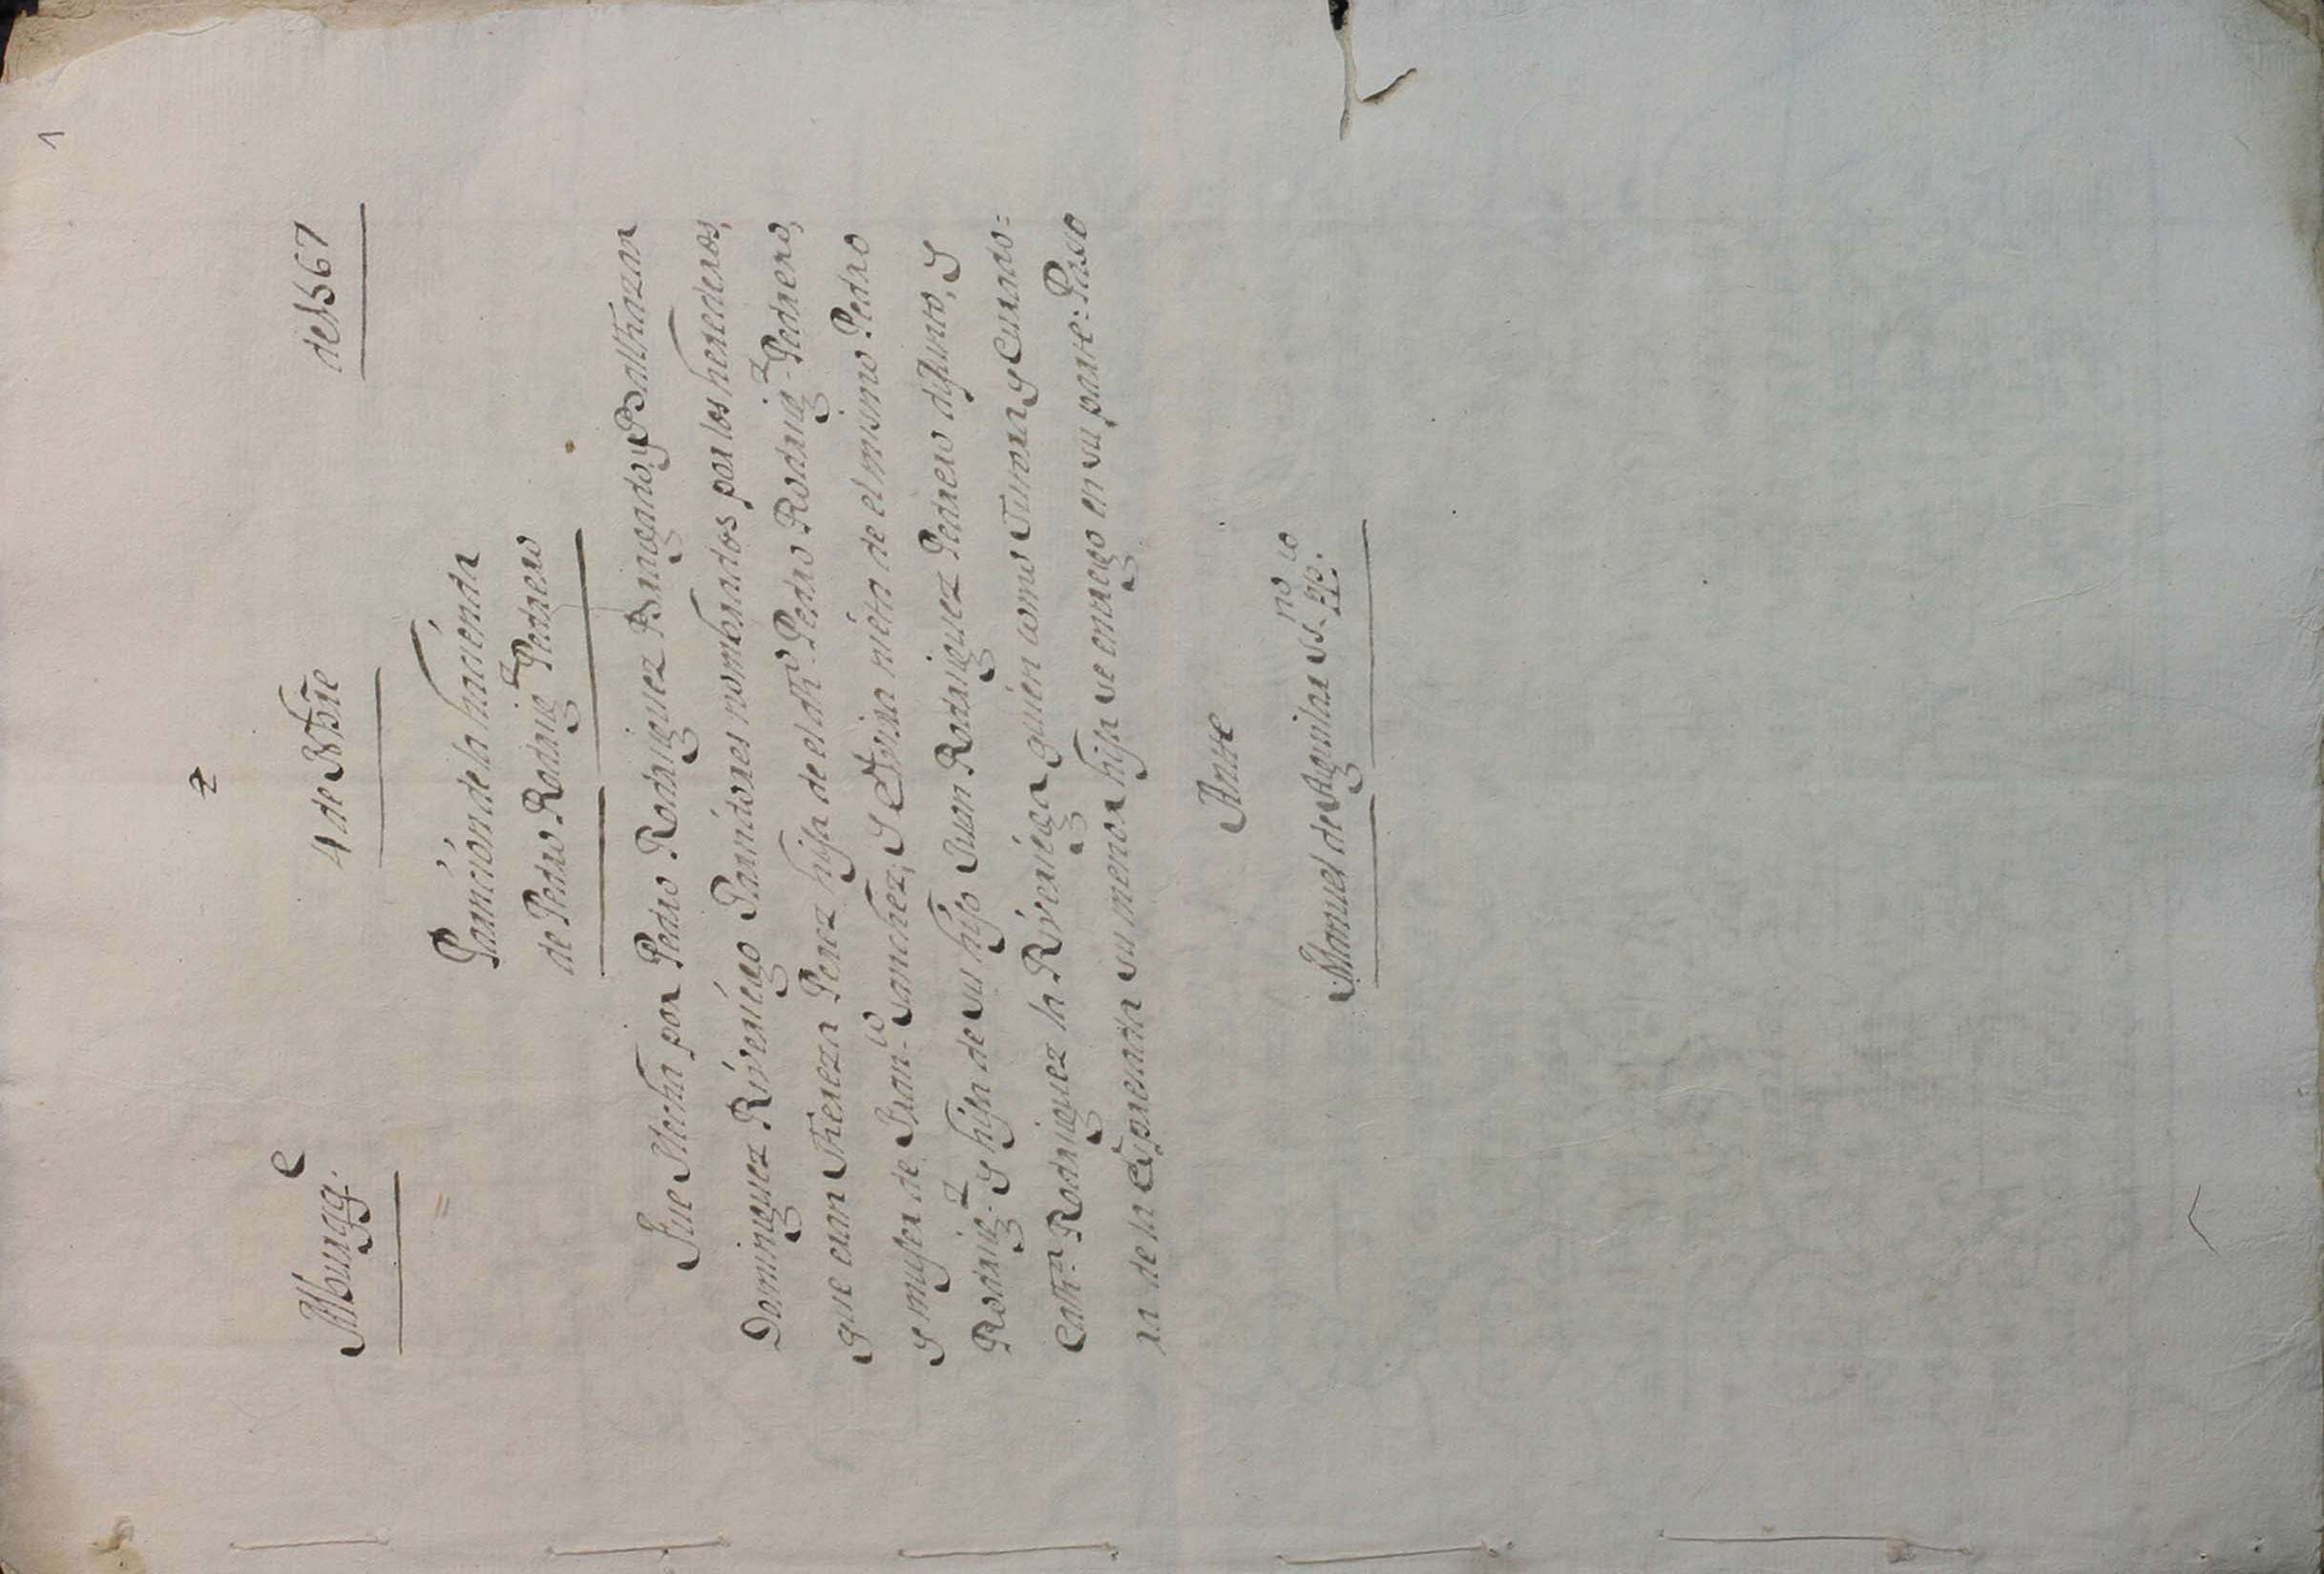 1
Alburqq.e 4 de 8bre de 1567
Partición de la haciénda
de Pedro Rodrig.z Pedrero
Fue Hecha por Pedro Rodriguez Bragado, y Balthazar
Dominguez Riveriégo Partidores nombrados por los herederos,
que eran Thereza Perez hija de el dho. Pedro Rodrig.z Pedrero,
y mujer de Fran.co Sanchez, y niéta de el mismo Pedro
Rodrig.z y hija de su hijo Juan Rodriguez Pedrero difunto, y
Cath.na Rodriguez la Riveriéga quién como Tutora, y Curado=
ra de la expresada su menor hija se entrego en su parte: Passo
Ante
Manuel de Aguilar ss.no pp.co